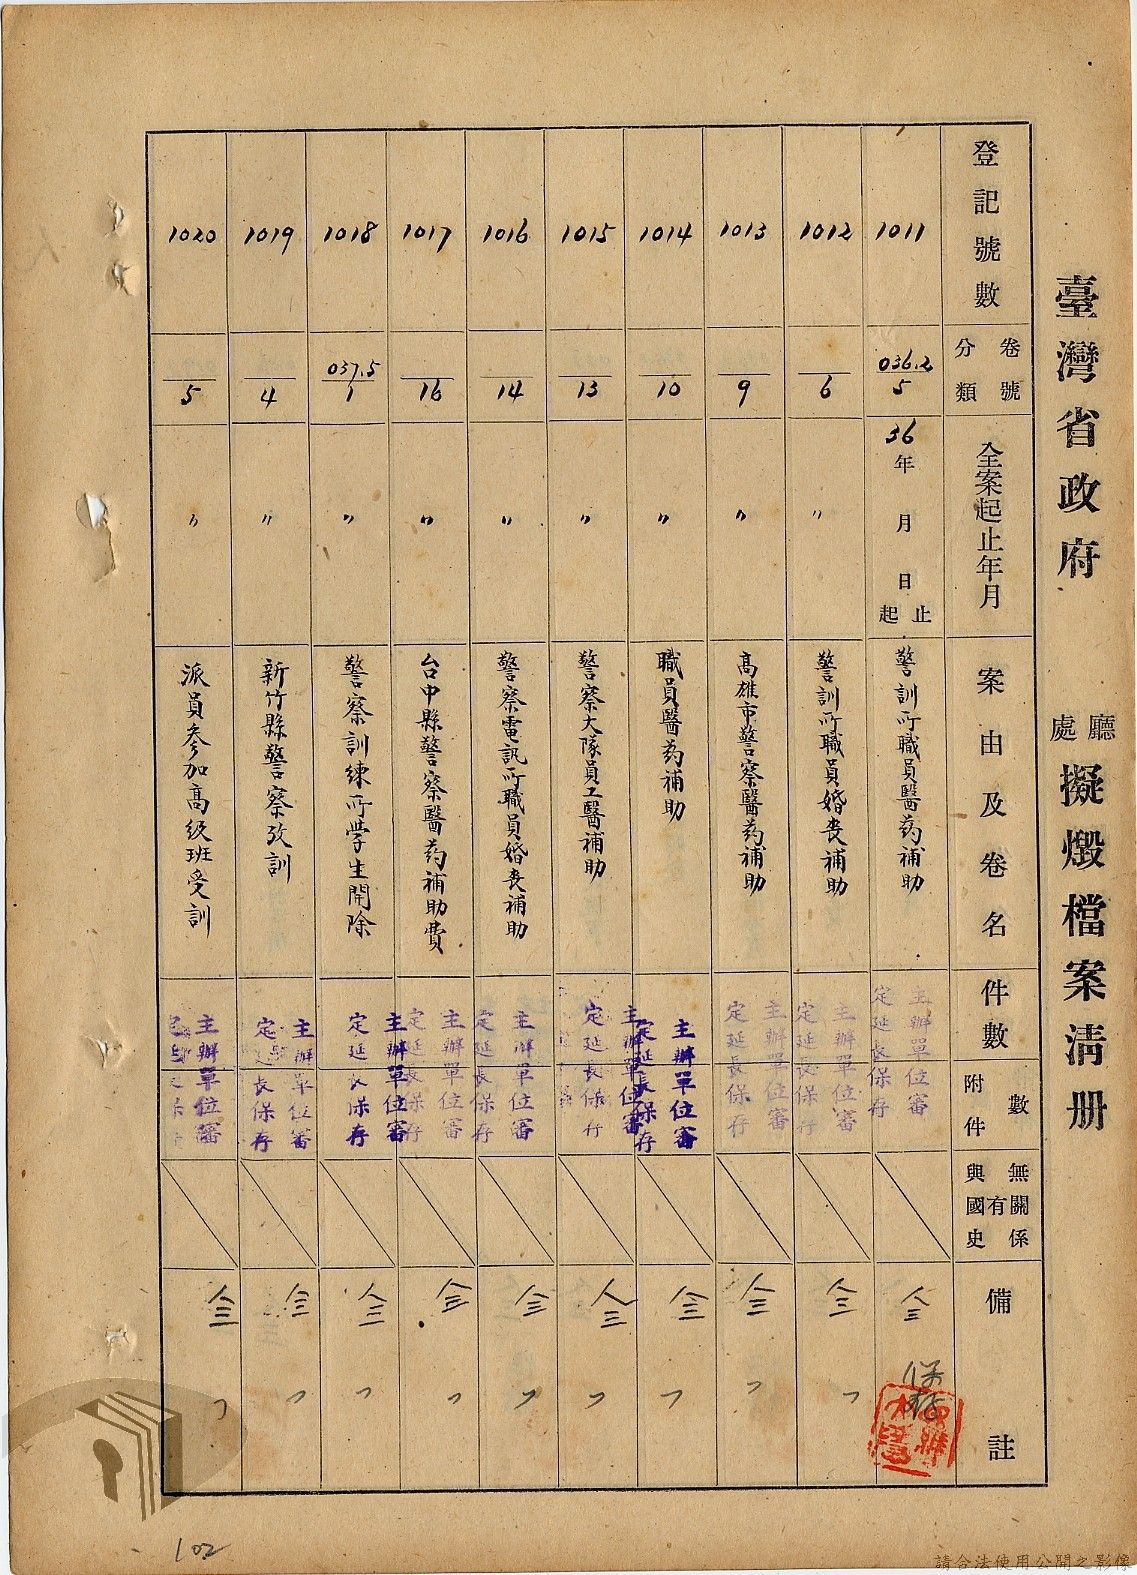 臺灣省政府 廳處 擬燬檔案清册
登記號數
卷號 分類
全案起止年月
案由及卷名
件數
附件數
無有關係與國史
備註
1011 036.2/5 36年 月 日 起止 警訓所職員醫葯補助 主辦單位審定延長保存 仝三 保存
1012 6 〃 警訓所職員婚喪補助 主辦單位審定延長保存 仝三 〃
1013 9 〃 高雄市警察醫葯補助 主辦單位審定延長保存 仝三 〃
1014 10 〃 職員醫葯補助 主辦單位審定延長保存 仝三 〃
1015 13 〃 警察大隊員工醫補助 主辦單位審定延長保存 仝三 〃
1016 14 〃 警察電訊所職員婚喪補助 主辦單位審定延長保存 仝三 〃
1017 16 〃 台中縣警察醫葯補助費 主辦單位審定延長保存 仝三 〃
1018 037.5/1 〃 警察訓練所學生開除 主辦單位審定延長保存 仝三 〃
1019 4 〃 新竹縣警察攷訓 主辦單位審定延長保存 仝三 〃
1020 5 〃 派員參加高級班受訓 主辦單位審定延長保存 仝三 〃
102
請合法使用公開之影像